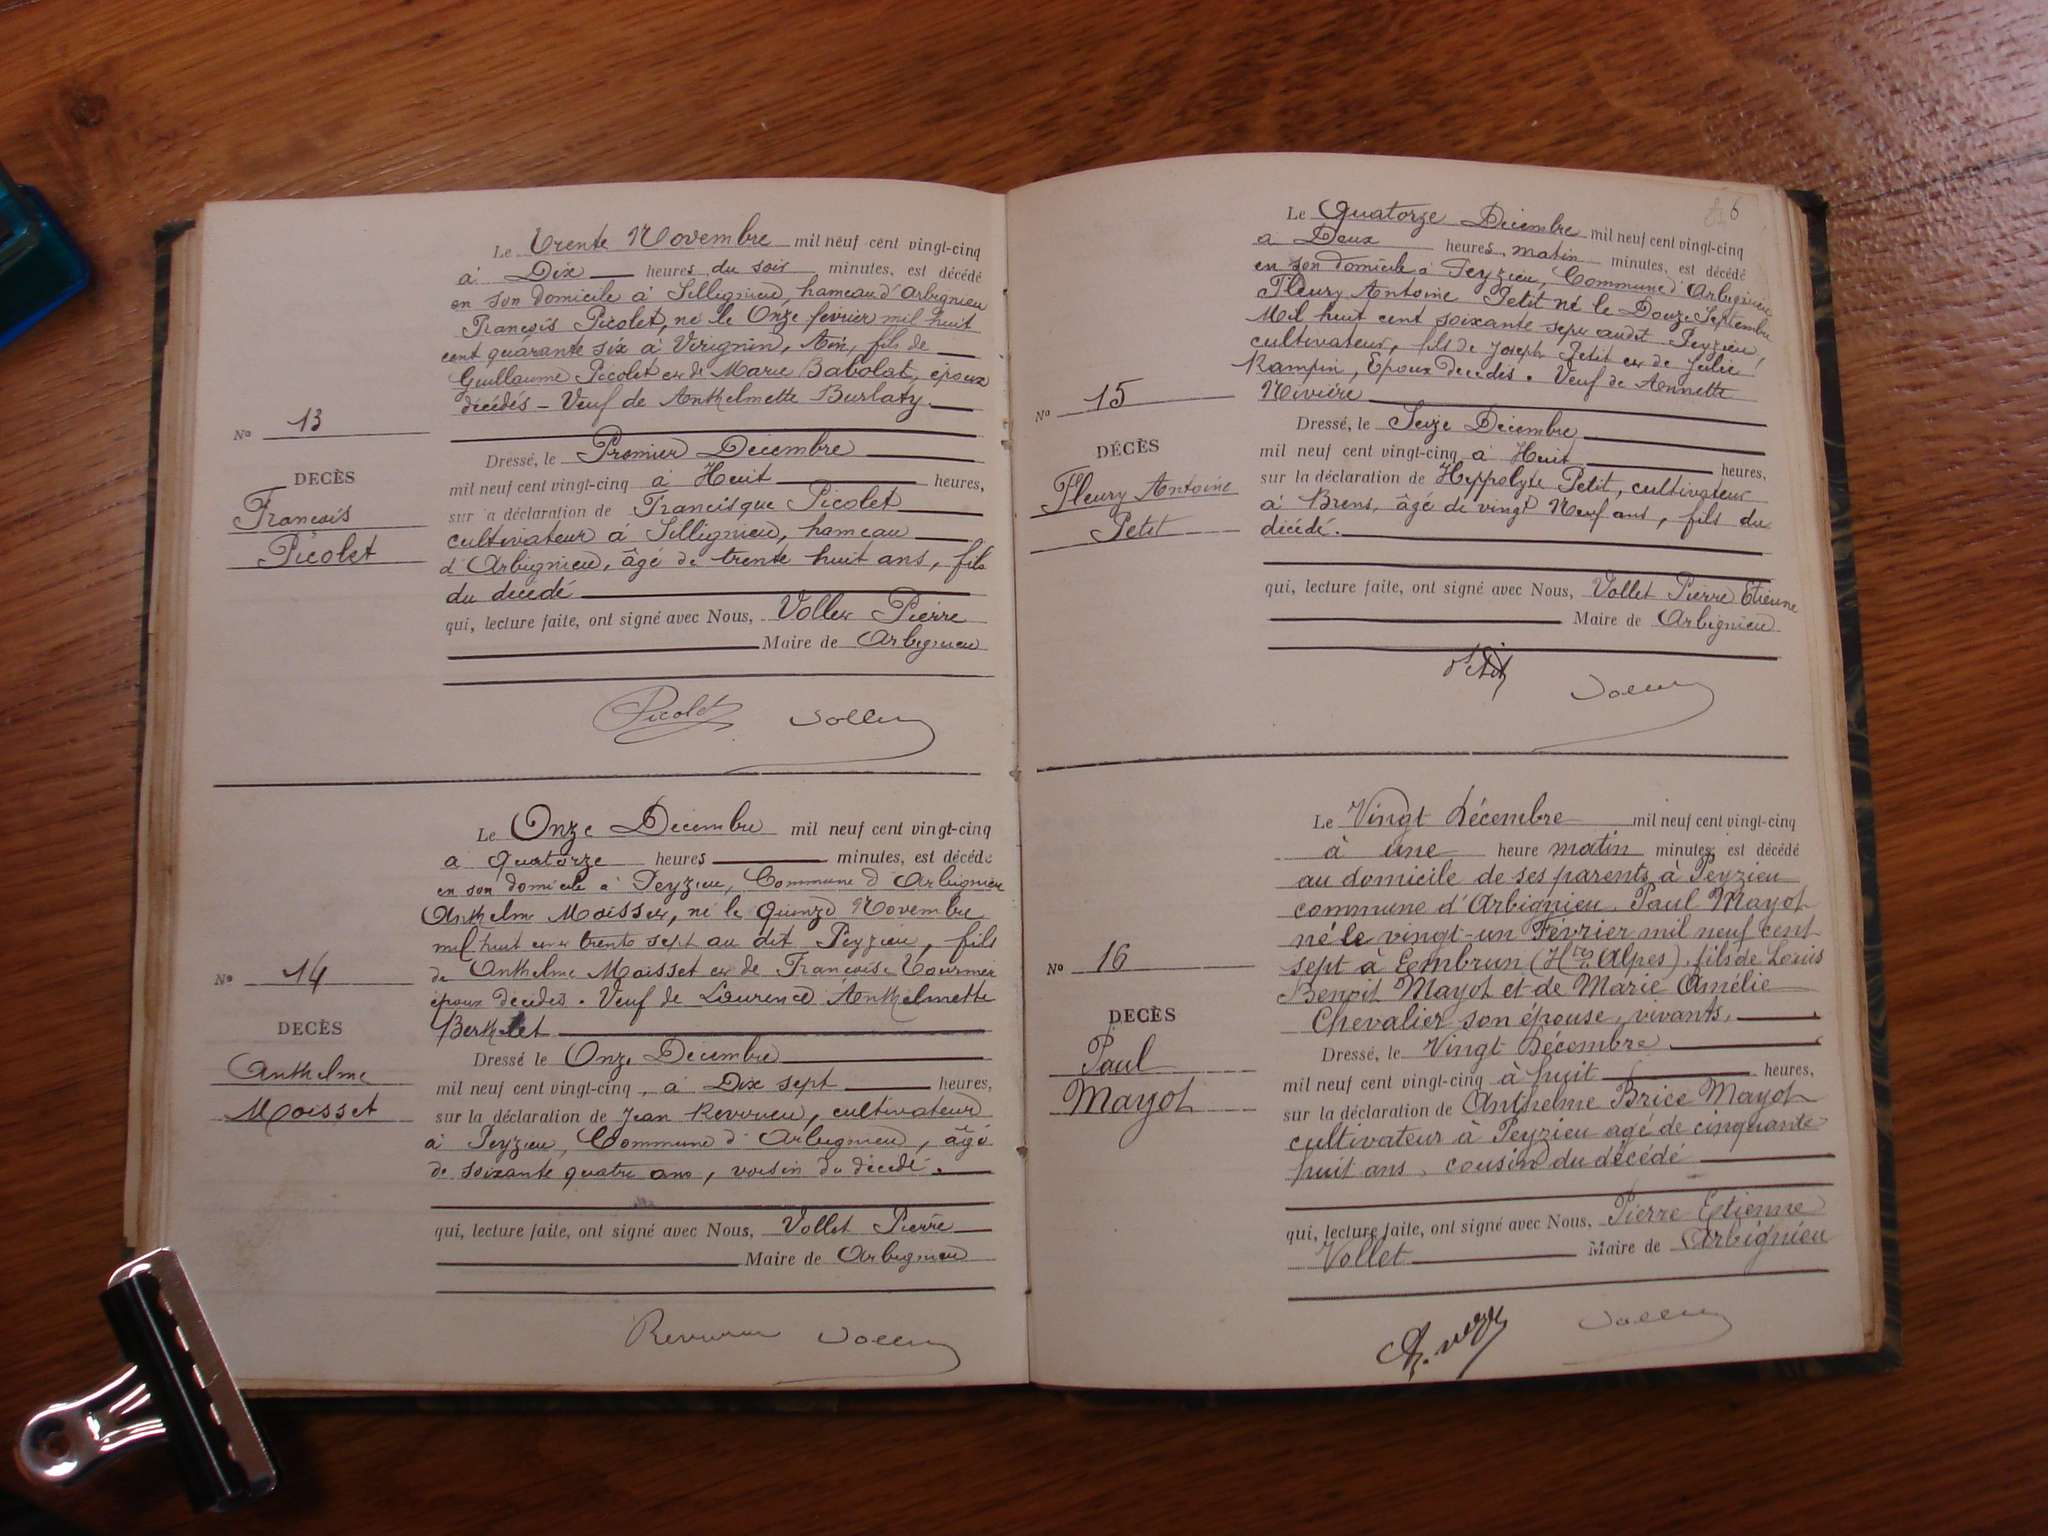 Le Trente Novembre mil neuf cent vingt-cinq
à Dix heures du soir minutes, est décédé
en son domicile à Sillignieu, hameau d'Arbignieu
François Picolet, né le Onze fevrier mil huit
cent quarante six à Virignin, Ain, fils de
Guillaume Picolet et de Marie Babolat, époux
décédés - Veuf de Anthelmette Burlaty
No 13
DECÈS
François
Picolet
Dressé, le Premier Décembre
mil neuf cent vingt-cinq à Huit heures,
sur la déclaration de Francisque Picolet
cultivateur à Sillignieu, hameau
d'Arbignieu, âgé de trente huit ans, fils
du décédé
qui, lecture faite, ont signé avec Nous, Vollet Pierre
Maire de Arbignieu
Picolet Vollet
Le Onze Décembre mil neuf cent vingt-cinq
à quatorze heures minutes, est décédé
en son domicile à Peyzieu, Commune d'Arbignieu
Anthelme Moisset, né le Quinze Novembre
mil huit cent trente sept au dit Peyzieu, fils
de Anthelme Moisset et de Françoise Tournier
époux décédés. Veuf de Laurence Anthelmette
Berthelet
No 14
DECÈS
Anthelme
Moisset
Dressé le Onze Décembre
mil neuf cent vingt-cinq, à Dix sept heures,
sur la déclaration de Jean Revurieu, cultivateur
à Peyzieu, Commune d'Arbignieu, âgé
de soixante quatre ans, voisin du décédé.
qui, lecture faite, ont signé avec Nous, Vollet Pierre
Maire de Arbignieu
Vollet
6
Le Quatorze Décembre mil neuf cent vingt-cinq
à Deux heures, matin minutes, est décédé
en son domicile à Peyzieu, Commune d'Arbignieu
Fleury Antoine Petit né le Douze Septembre
Mil huit cent soixante sept audit Peyzieu,
cultivateur, fils de Joseph Petit et de Julie
Rampin, Epoux décédés. Veuf de Annette
Rivière
No 15
DÉCÈS
Fleury Antoine
Petit
Dressé, le Seize Décembre
mil neuf cent vingt-cinq à Huit heures,
sur la déclaration de Hyppolyte Petit, cultivateur
à Brens, âgé de vingt Neuf ans, fils du
décédé.
qui, lecture faite, ont signé avec Nous, Vollet Pierre Etienne
Maire de Arbignieu
Petit Vollet
Le Vingt Décembre mil neuf cent vingt-cinq
à une heure matin minutes, est décédé
au domicile de ses parents à Peyzieu
commune d'Arbignieu, Paul Mayot
né le vingt-un Février mil neuf cent
sept à Embrun (Htes Alpes), fils de Louis
Benoit Mayot et de Marie Amélie
Chevalier son épouse, vivants,
No 16
DECÈS
Paul
Mayot
Dressé, le Vingt Décembre
mil neuf cent vingt-cinq à huit heures,
sur la déclaration de Anthelme Brice Mayot
cultivateur à Peyzieu agé de cinquante
huit ans, cousin du décédé
qui, lecture faite, ont signé avec Nous, Pierre Etienne
Vollet Maire de Arbignieu
Vollet